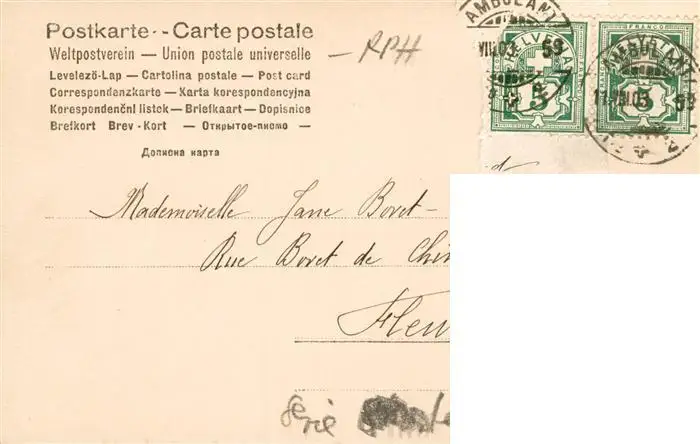 Postkarte -- Carte postale
Weltpostverein — Union postale universelle
Levelező-Lap — Cartolina postale — Post card
Correspondenzkarte — Karta korespondencyjna
Korespondenční listok — Briefkaart — Dopisnice
Brefkort Brev-Kort — Открытое-писмо —
Дописна карта
RPH
AMBULANT
VIII.03 59
HELVETIA
5
FRANCO
AMBULANT
VIII.03 59
5
Mademoiselle Jane Bovet-
Rue Bovet de Chin
Fleu
Serie